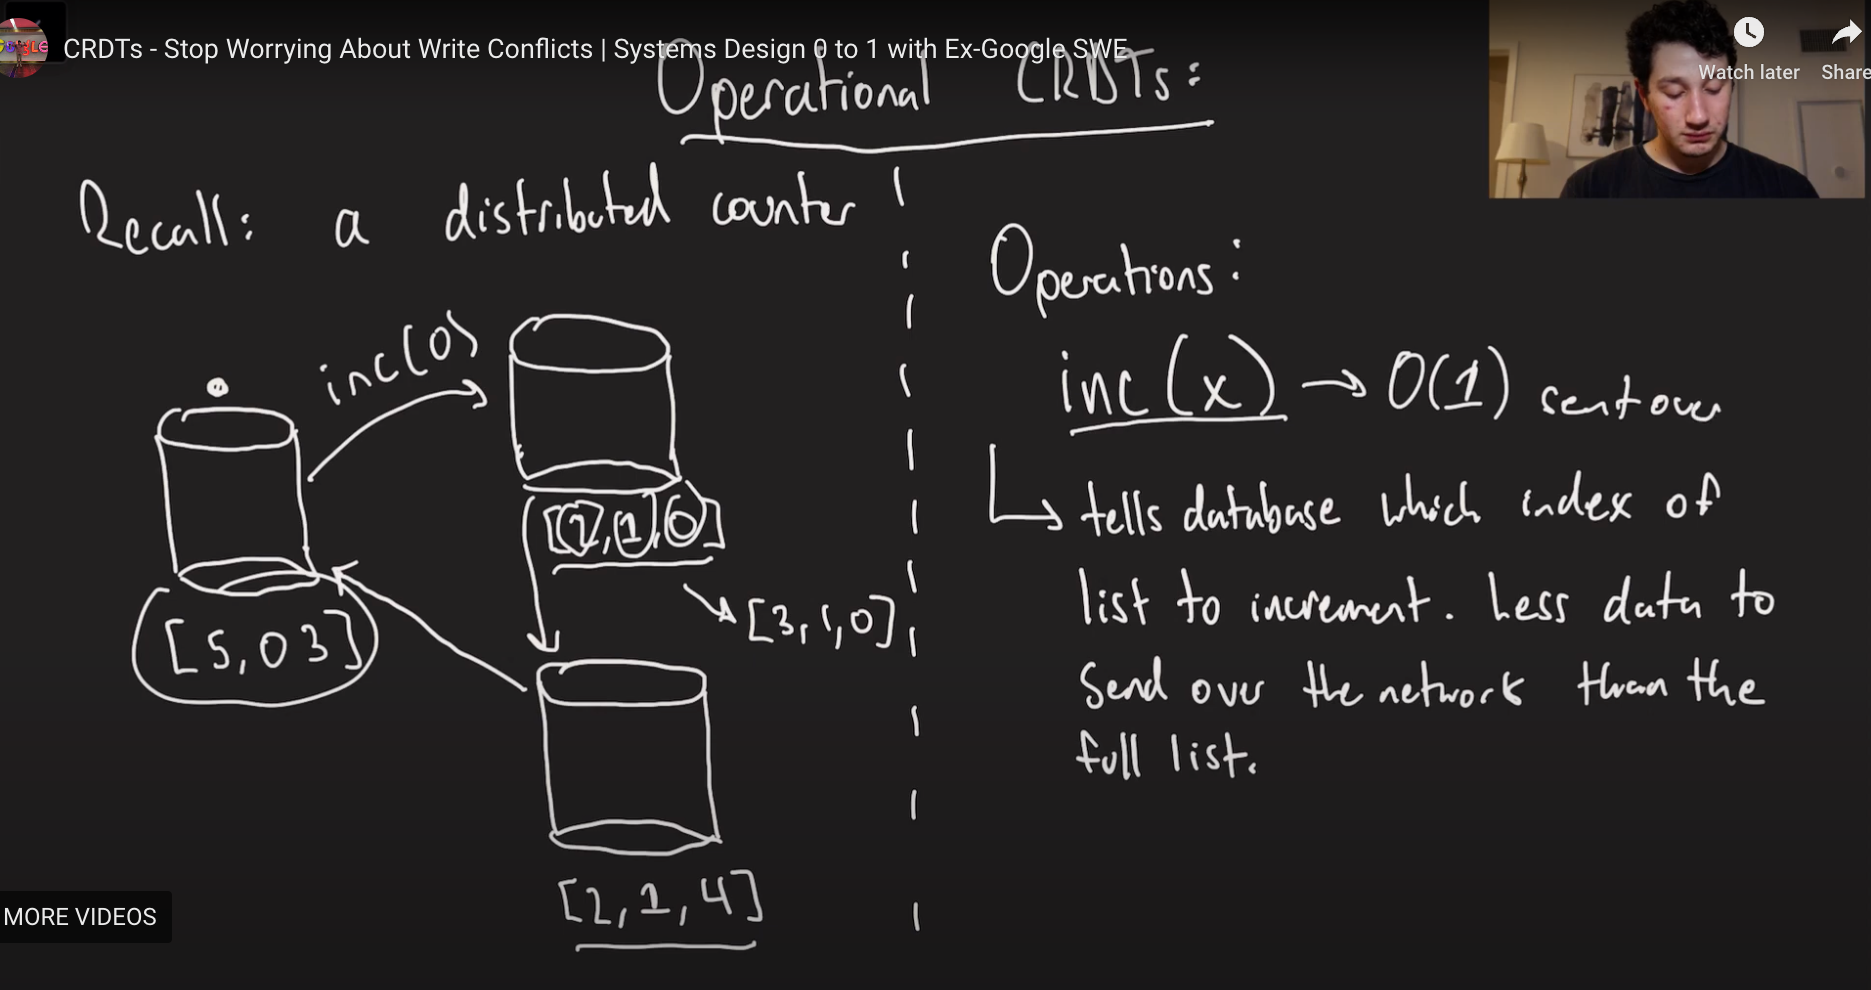 CRDTs - Stop Worrying About Write Conflicts | Systems Design 0 to 1 with Ex-Google SWE
Watch later
Share
Operational CRDTs:
Recall: a distributed counter
inc(0)
[2,1,0]
[3,1,0]
[5,03]
[2,1,4]
Operations:
inc(x) → O(1) sent over
↳ tells database which index of
list to increment. Less data to
send over the network than the
full list.
MORE VIDEOS